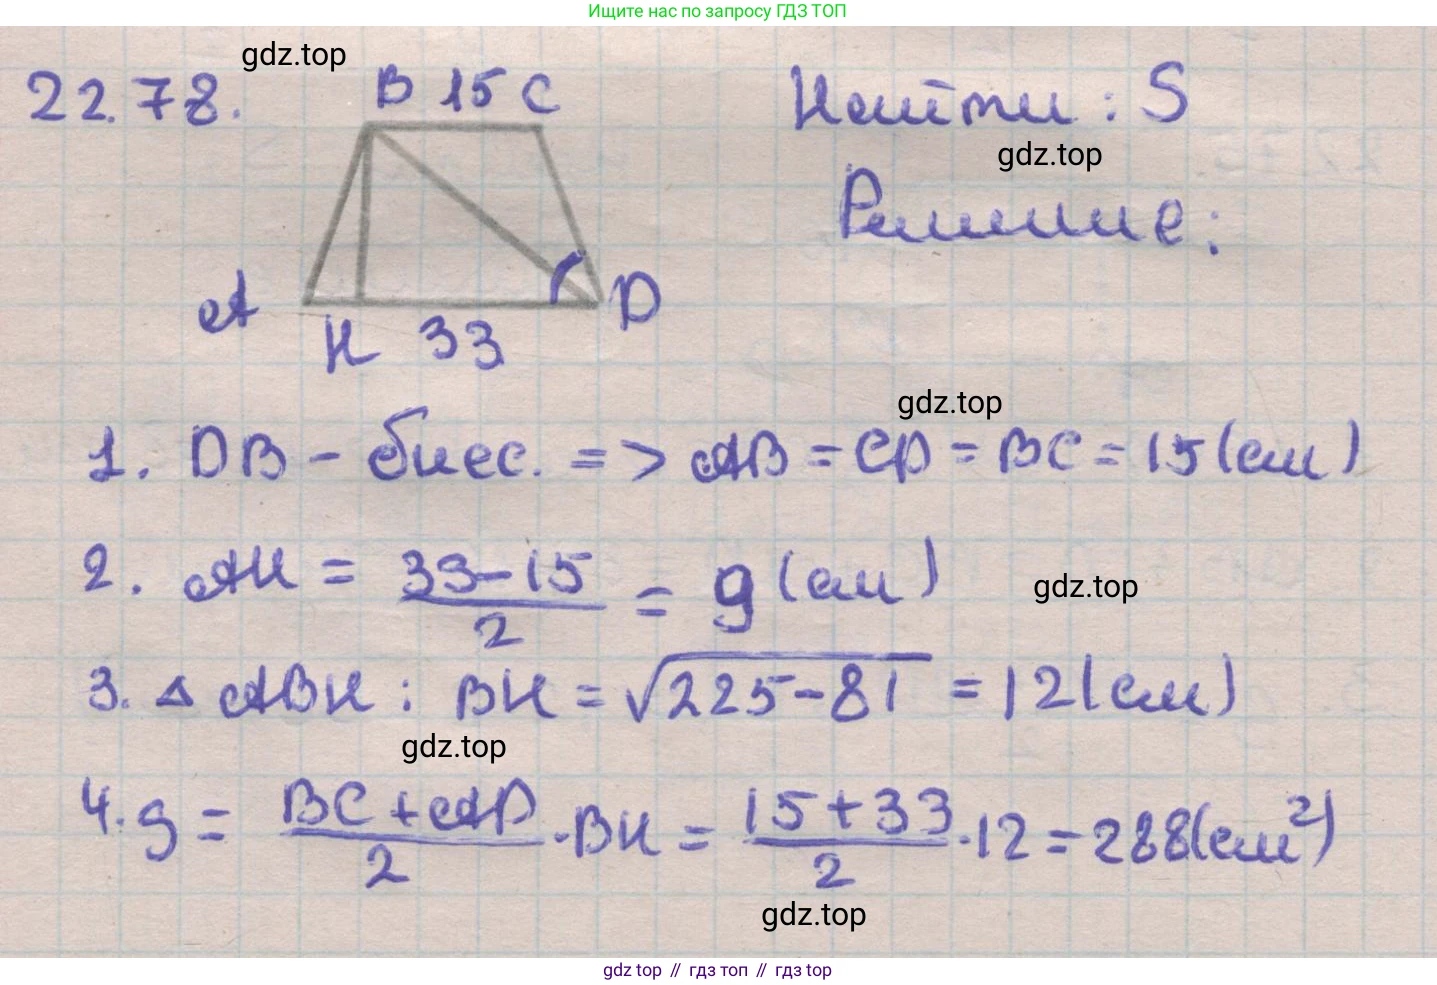 Ищите нас по запросу ГДЗ ТОП
gdz.top
22.78.
B 15 C
Найти : S
gdz.top
Решение:
A
D
H 33
gdz.top
1. DB - бисс. => AB = CD = BC = 15 (см)
2. AH = \frac{33-15}{2} = 9 (см)
gdz.top
3. △ ABH : BH = √225-81 = 12 (см)
gdz.top
4. S = \frac{BC + AD}{2} · BH = \frac{15 + 33}{2} · 12 = 288 (см²)
gdz.top
gdz top // гдз топ // гдз top